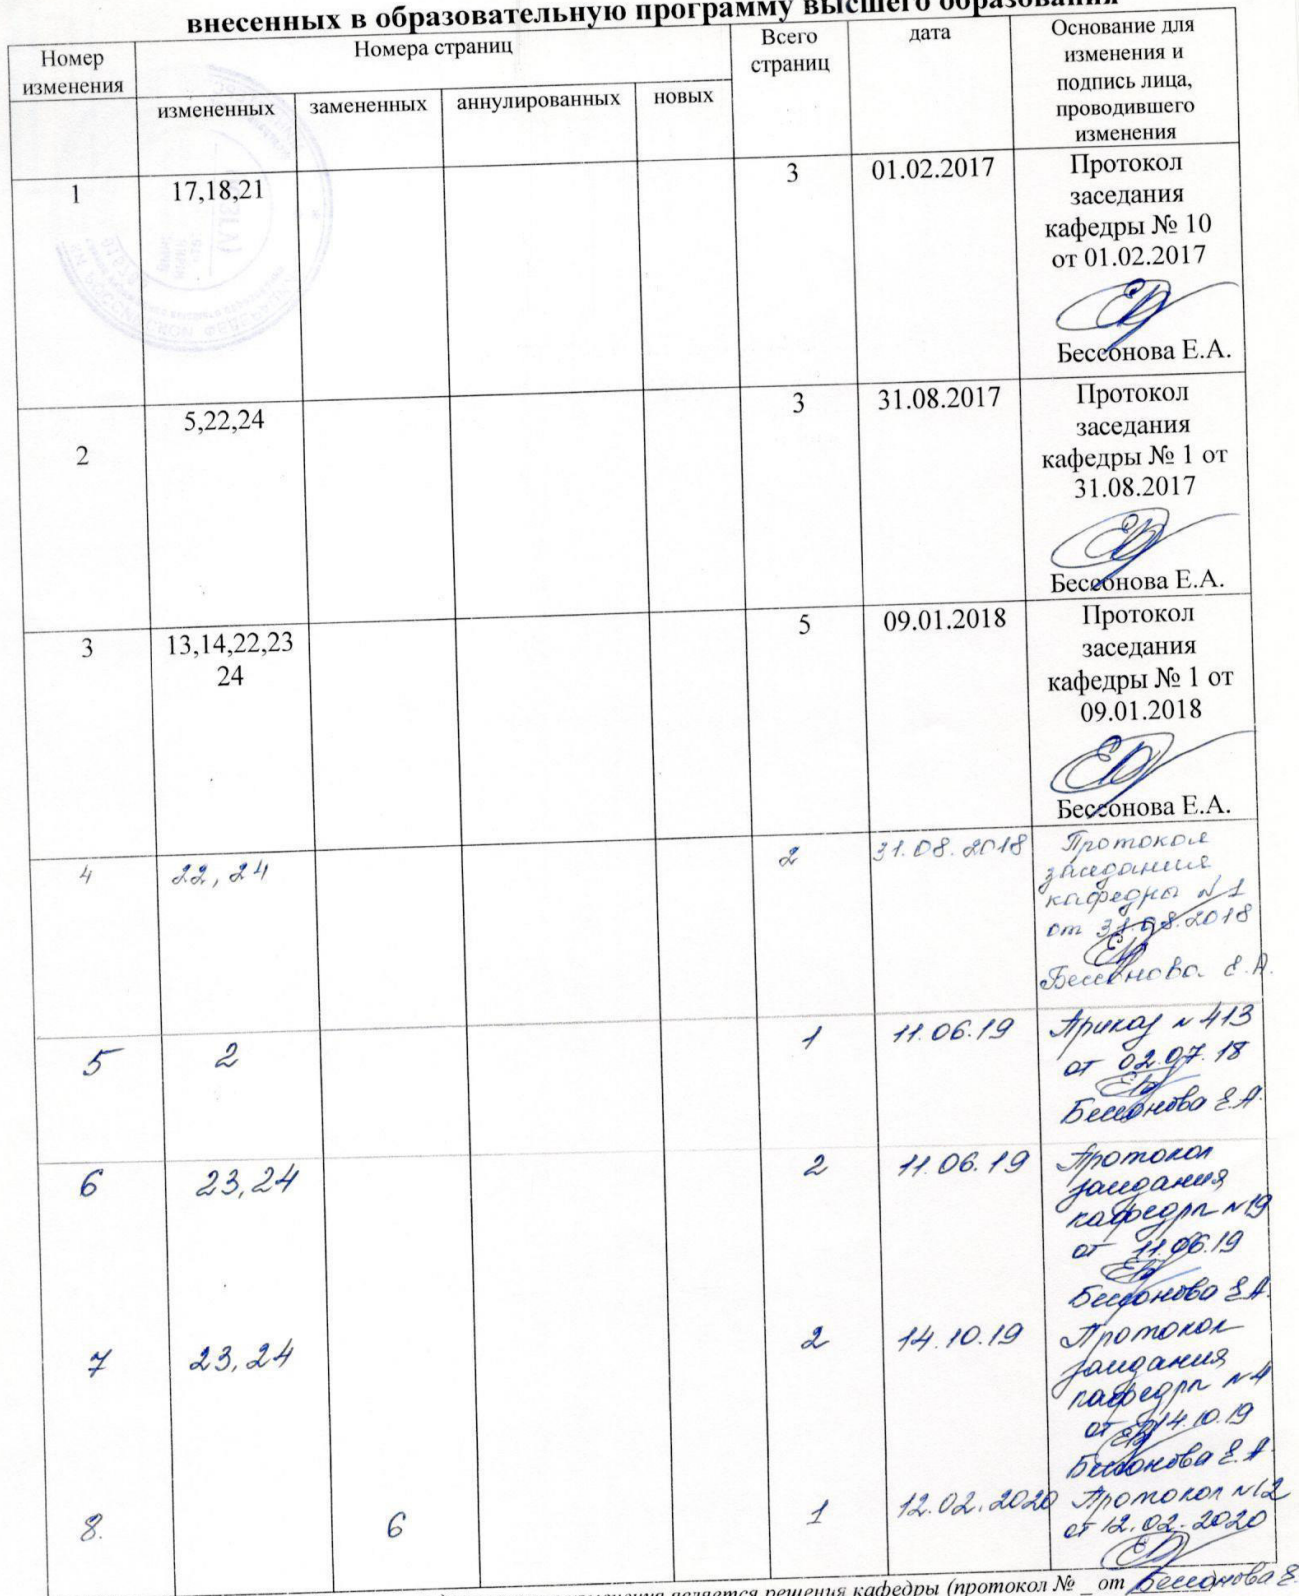 внесенных в образовательную программу высшего образования
Номер изменения
Номера страниц
Всего страниц
дата
Основание для
изменения и
подпись лица,
проводившего
изменения
измененных замененных аннулированных новых
1 17,18,21 3 01.02.2017 Протокол
заседания
кафедры № 10
от 01.02.2017
Бессонова Е.А.
2 5,22,24 3 31.08.2017 Протокол
заседания
кафедры № 1 от
31.08.2017
Бессонова Е.А.
3 13,14,22,23 5 09.01.2018 Протокол
24 заседания
кафедры № 1 от
09.01.2018
Бессонова Е.А.
4 22, 24 2 31.08.2018 Протокол
заседания
кафедры №1
от 31.08.2018
Бессонова Е.А.
5 2 1 11.06.19 Приказ №413
от 02.07.18
Бессонова Е.А.
6 23,24 2 11.06.19 Протокол
заседания
кафедры №19
от 11.06.19
Бессонова Е.А.
7 23,24 2 14.10.19 Протокол
заседания
кафедры №4
от 14.10.19
Бессонова Е.А.
8. 6 1 12.02.2020 Протокол №12
от 12.02.2020
является решения кафедры (протокол № _ от Бессонова Е